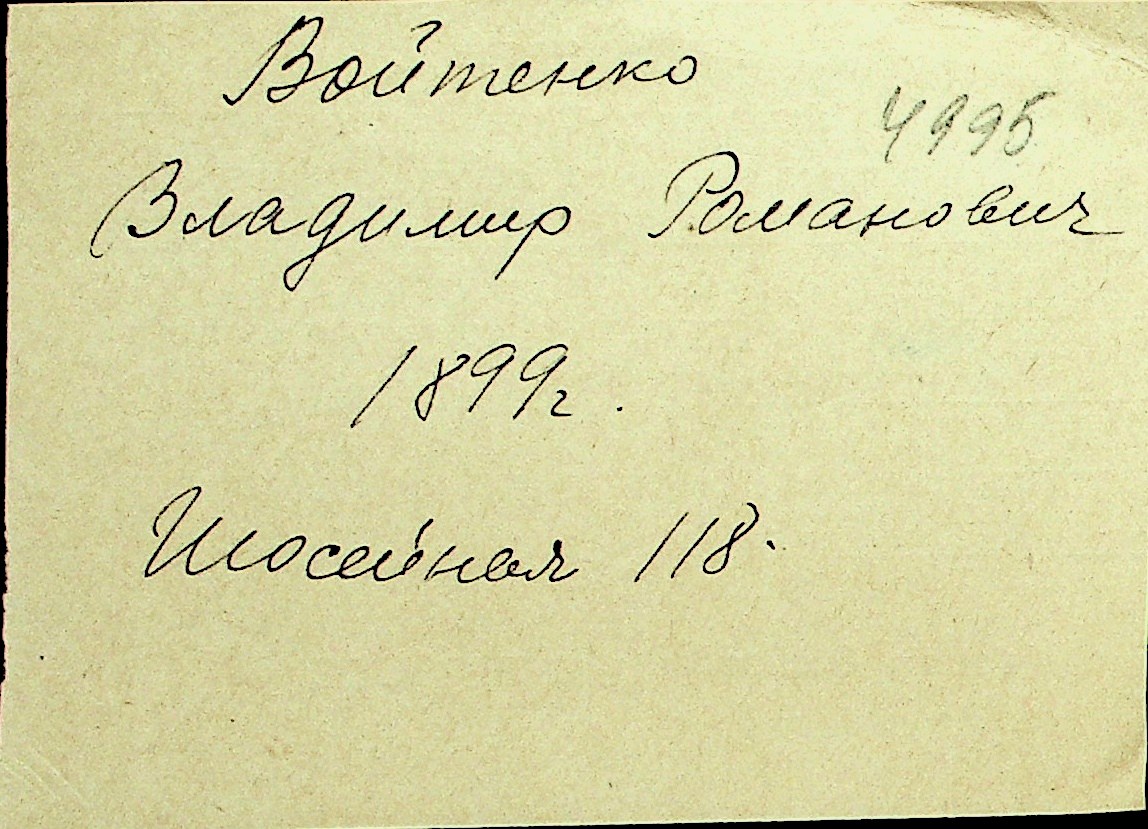 Войтенко
4995
Владимир Романович
1899г.
Шосейная 118.